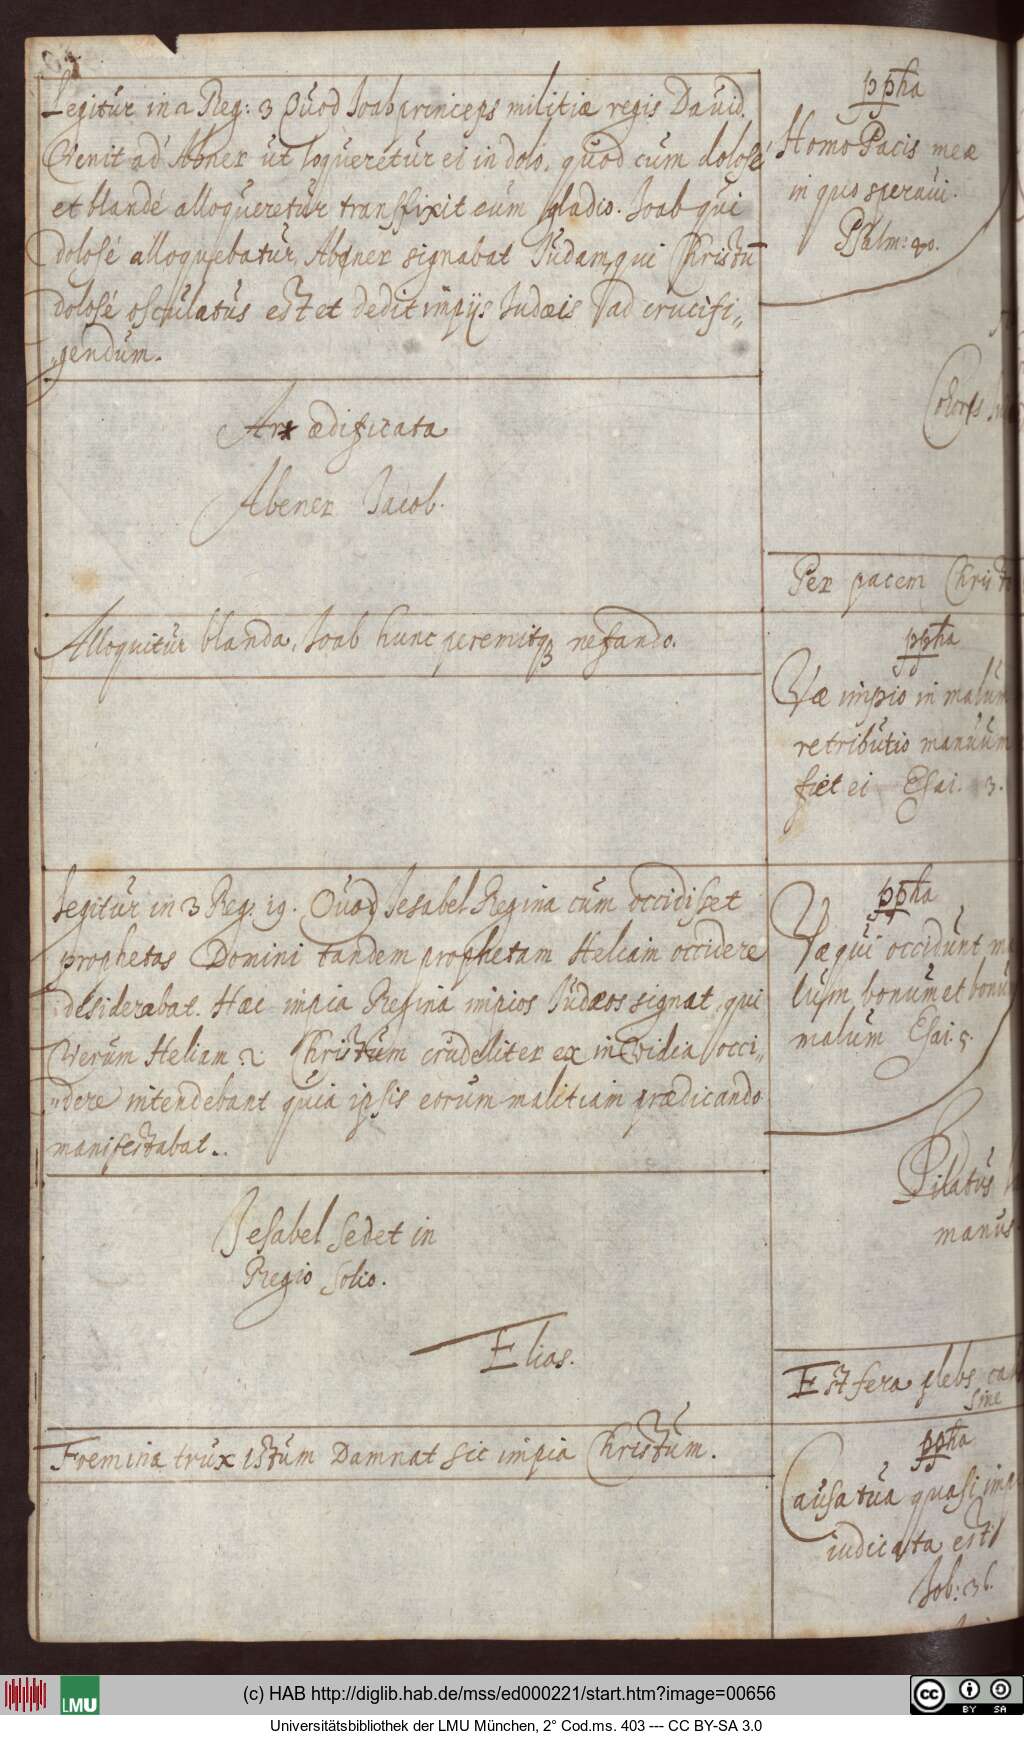 Legitur in 2 Reg: 3 Quod Joab princeps militiæ regis Dauid.
Venit ad Abner ut loqueretur ei in dolo. quod cum dolosé
et blandé alloqueretur transfixit eum gladio. Joab qui
dolosé alloquebatur, Abner signabat Judam qui Christū
dolosé osculatus est et dedit impijs Judæis ad crucifi„
„gendum.
Arx ædificata
Abener Jacob.
Alloquitur blanda, Joab hunc peremitqȝ nefando.
Legitur in 3 Reg: 19. Quod Jesabel Regina cum occidisset
prophetas Domini tandem prophetam Heliam occidere
desiderabat. Hæc impia Regina impios Judæos signat, qui
Verum Heliam 2 Christum crudeliter ex invidia occi„
„dere intendebant quia ipsis eorum malitiam prædicando
manifestabat..
Jesabel sedet in
Regio solio.
Elias.
Foemina trux istum Damnat sic impia Christum.
ppha
Homo Pacis meæ
in quo speraui.
Psalm: 40.
Cohors
Per pacem Christ
ppha
Væ impio in malum
retributio manuum
fiet ei Esai. 3.
ppha
Væ qui occidunt
lum bonum et bonum
malum Esai. 5.
Pilatus
manus
Est fera plebs
sine
ppha
Causa tua quasi imp
iudicata est
Job: 36.
(c) HAB http://diglib.hab.de/mss/ed000221/start.htm?image=00656
LMU
cc BY SA
Universitätsbibliothek der LMU München, 2° Cod.ms. 403 --- CC BY-SA 3.0